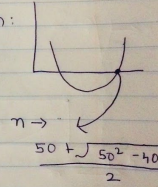 n →
50 + √50² - 40
2